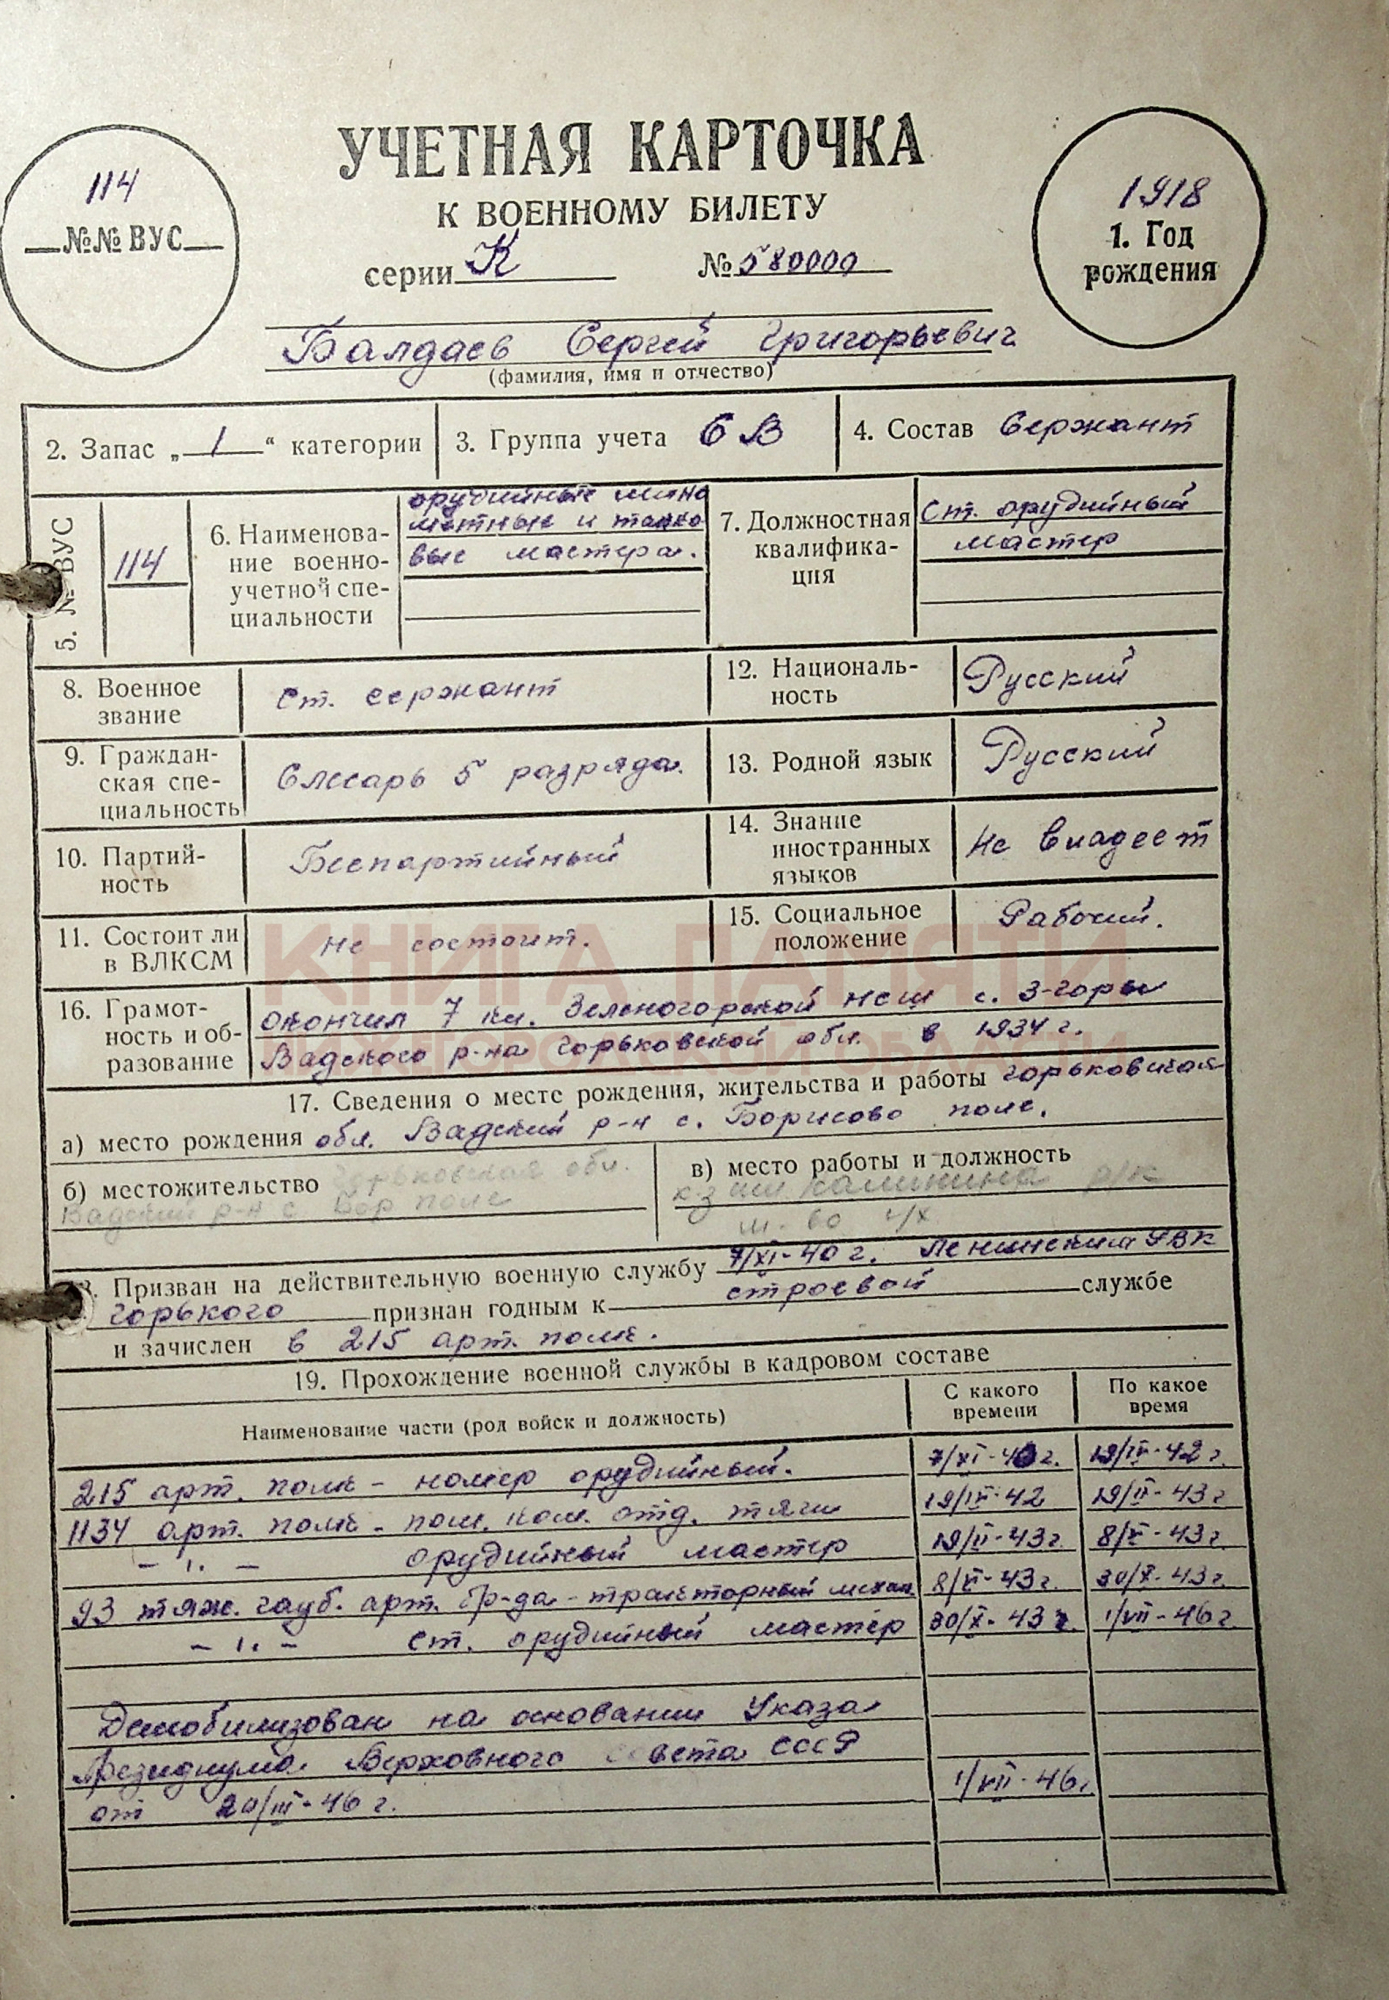 УЧЕТНАЯ КАРТОЧКА
К ВОЕННОМУ БИЛЕТУ
серии К № 580000
114
№№ ВУС
1918
1. Год
рождения
Балдаев Сергей Григорьевич
(фамилия, имя и отчество)
2. Запас „ 1 “ категории
3. Группа учета 6 В
4. Состав Сержант
5. № ВУС
114
6. Наименова-
ние военно-
учетной спе-
циальности
орудийные мино
метные и танко
вые мастера.
7. Должностная
квалифика-
ция
Ст. орудийный
мастер
8. Военное
звание
Ст. сержант
9. Граждан-
ская спе-
циальность
Слесарь 5 разряда.
10. Партий-
ность
Беспартийный
11. Состоит ли
в ВЛКСМ
не состоит.
12. Националь-
ность
Русский
13. Родной язык
Русский
14. Знание
иностранных
языков
Не владеет
15. Социальное
положение
Рабочий.
КНИГА ПАМЯТИ
НИЖЕГОРОДСКОЙ ОБЛАСТИ
16. Грамот-
ность и об-
разование
окончил 7 кл. Зеленогорской нсш с. З-горы
Вадского р-на Горьковской обл. в 1934 г.
17. Сведения о месте рождения, жительства и работы Горьковская
а) место рождения обл. Вадский р-н с. Борисово поле.
б) местожительство Горьковская обл.
Вадский р-н с Бор поле
в) место работы и должность
к-з им. Калинина р/к
с/х
Призван на действительную военную службу 7/XI-40 г. Ленинским РВК
Горького признан годным к строевой службе
и зачислен в 215 арт. полк.
19. Прохождение военной службы в кадровом составе
Наименование части (род войск и должность)
С какого
времени
По какое
время
215 арт. полк - номер орудийный. 7/XI-40г. 19/IV-42 г.
1134 арт. полк - пом. ком. отд. тяги 19/IV-42 19/II-43 г
- " - орудийный мастер 19/II-43 г. 8/VI-43 г.
93 тяж. гауб. арт. бр-да - тракторный механ. 8/VI-43 г. 30/X-43 г.
- " - ст. орудийный мастер 30/X-43 г. 1/VII-46 г.
Демобилизован на основании Указа
Президиума Верховного Совета СССР
от 20/III-46 г. 1/VII-46г.